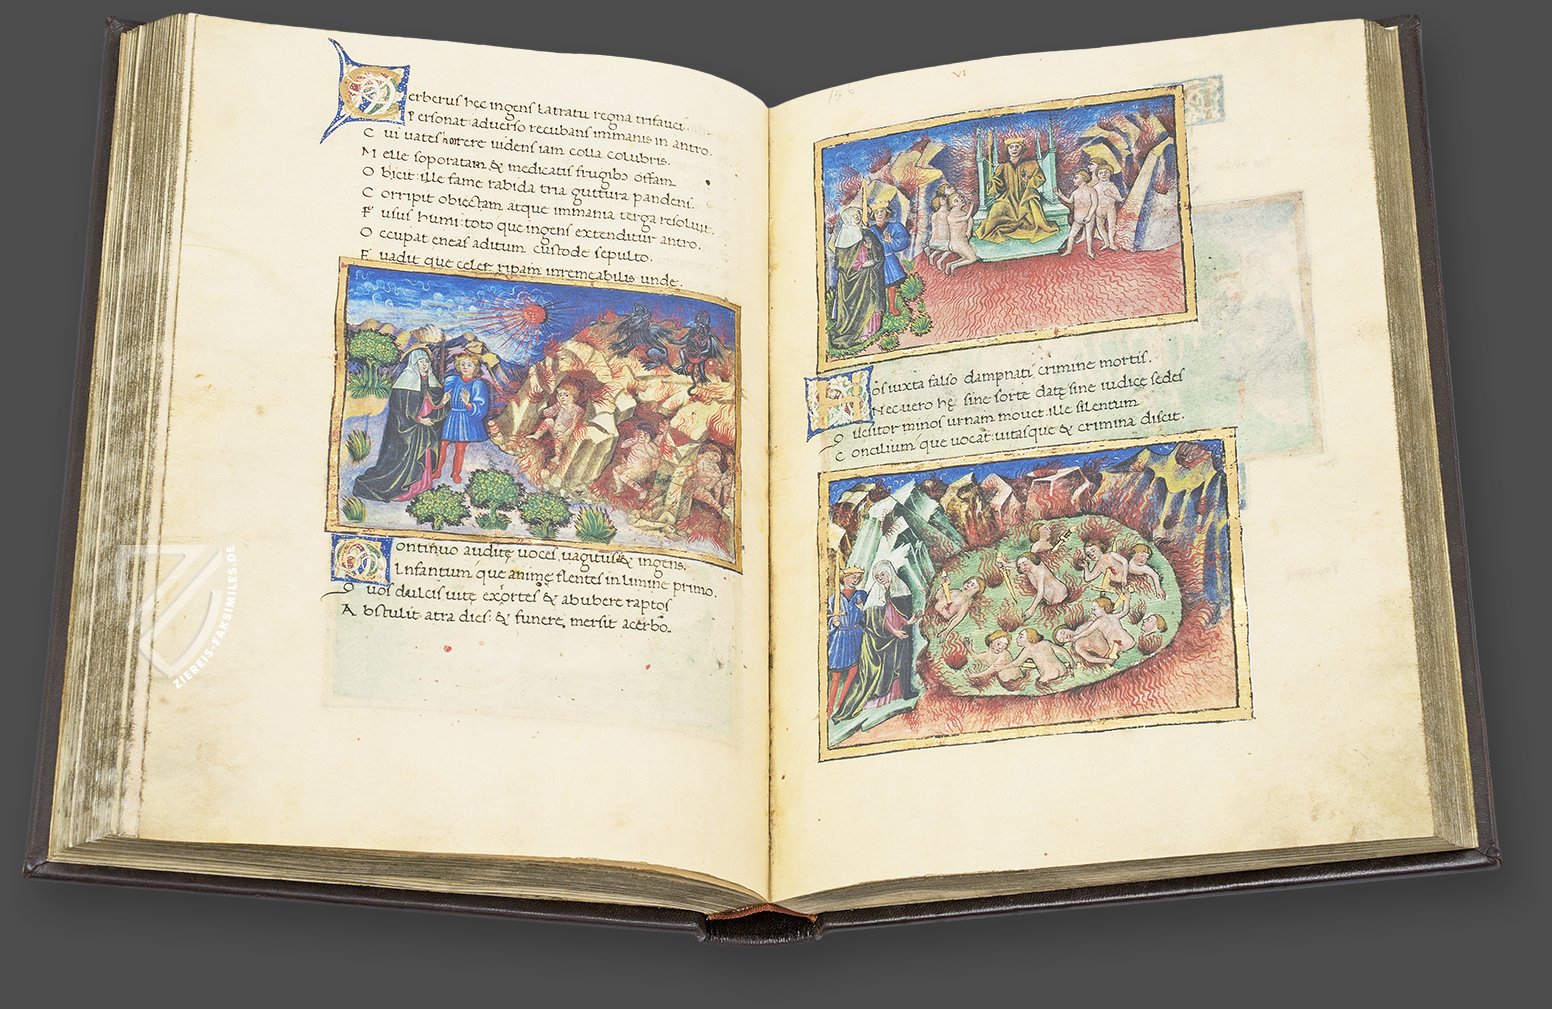 Cerberus hec ingens latratu regna trifauci.
Personat aduerso recubans immanis in antro.
Cui uates horrere uidens iam colla colubris.
Melle soporatam & medicatis frugibꝫ offam
Obicit: ille fame rabida tria guttura pandens.
Corripit obiectam atque immania terga resoluit.
Fusus humi: toto que ingens extenditur antro.
Occupat eneas aditum custode sepulto.
Euadit que celer ripam irremeabilis unde.
Continuo auditę uoces uagitus & ingens.
Infantum que anime flentes in limine primo.
Quos dulcis uitę exortes & ab ubere raptos
Abstulit atra dies: & funere mersit acerbo.
VI
156
Hos iuxta falso dampnati crimine mortis.
Nec uero hę sine sorte datę sine iudice sedes
Quesitor minos urnam mouet: ille silentum
Concilium que uocat: uitasque & crimina discit.
ZIEREIS-FAKSIMILES.DE